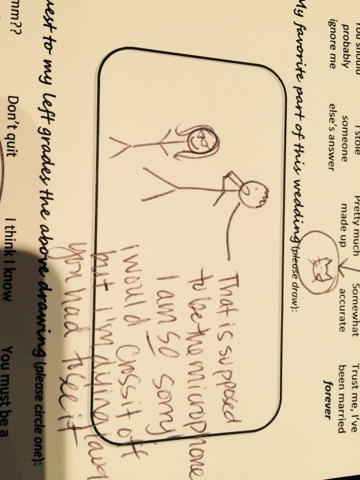 You should I stole Pretty much Somewhat Trust me, I've
probably someone made up accurate been married
ignore me else's answer forever
My favorite part of this wedding (please draw):
That is supposed
to be the microphone
I am so sorry
i would cross it off
but i'm dying
you had to see it
to my left grades the above drawing (please circle one):
mm?? Don't quit I think I know You must be a